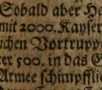 Sobald aber He
mit 2000. Kayser
chen Vortruppe
er 500. in das G
Armee schimpffli